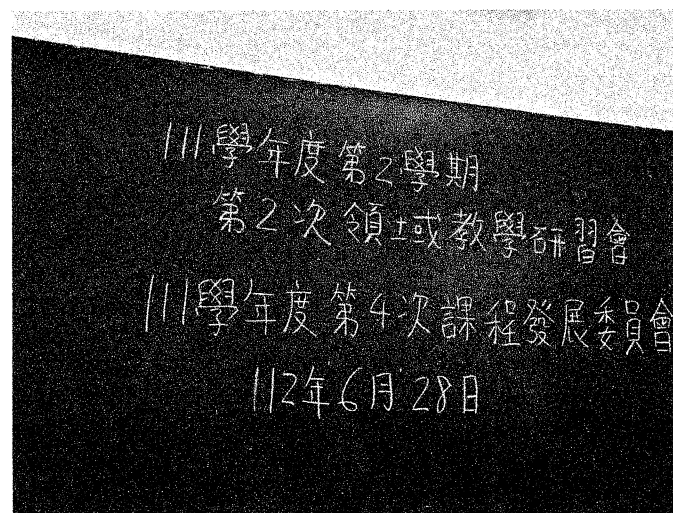 111學年度第2學期
第2次領域教學研習會
111學年度第4次課程發展委員會
112年6月28日